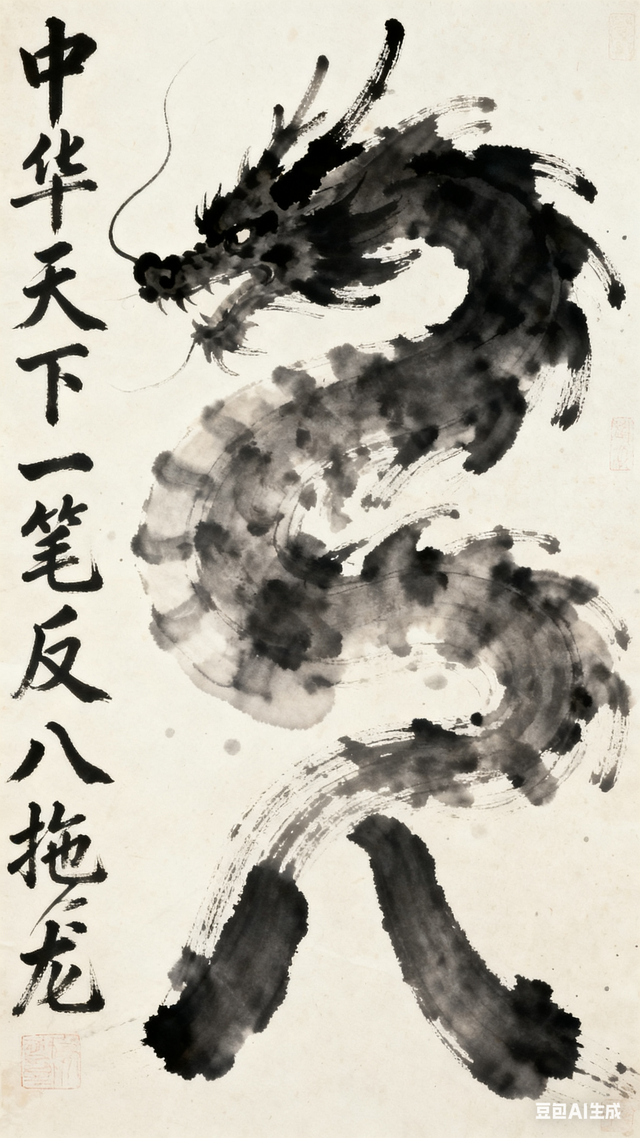 中华天下一笔反八拖龙
豆包AI生成